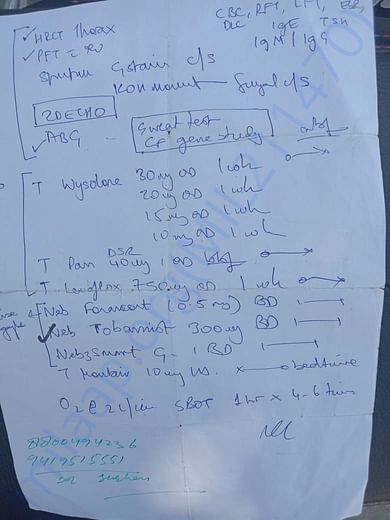 CBC, RFT, LFT, ESR
DLC IgE TSH
IgM / IgG
HRCT Thorax
PFT
Sputum Gstain c/s
KOH mount - fungal c/s
2DECHO
ABG
Sweat test
CF gene study
T Wysolone 30mg OD 1 wk
20mg OD 1 wk
15mg OD 1 wk
10mg OD 1 wk
T Pan DSR 40mg 1 OD bbf
T 750mg OD 1 wk
Neb Foracort (0.5mg) BD
Neb Tobamist 300mg BD
Neb 3Smart G - 1 BD
T Montair 10mg HS bedtime
O2 @ 2L/min SBOT 1hr x 4-6 times
9419515551